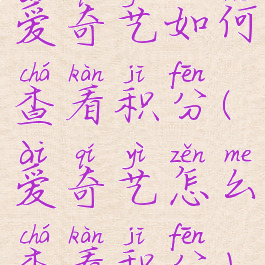 爱奇艺如何
chá kàn jī fēn
查看积分(
ài qí yì zěn me
爱奇艺怎么
chá kàn jī fēn
查看积分)